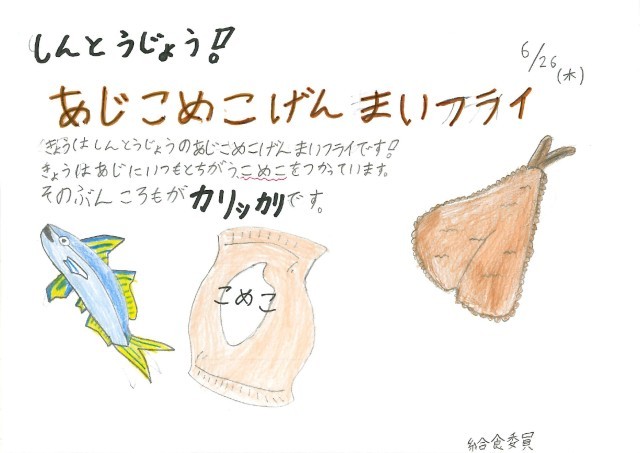 しんとうじょう!
6/26(水)
あじこめこげんまいフライ
きょうはしんとうじょうのあじこめこげんまいフライです!
きょうはあじにいつもとちがうこめこをつかっています。
そのぶんころもがカリッカリです。
こめこ
給食委員